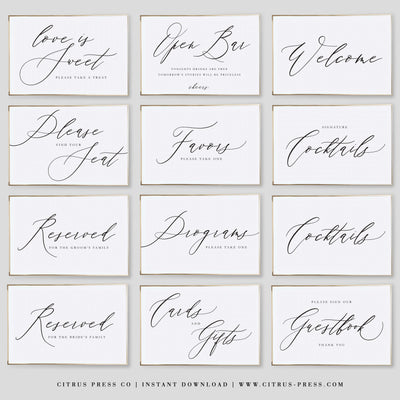 love is
Sweet
PLEASE TAKE A TREAT
Open Bar
TONIGHT'S DRINKS ARE FREE
TOMORROW'S STORIES WILL BE PRICELESS
cheers
Welcome
Please
FIND YOUR
Seat
Favors
PLEASE TAKE ONE
SIGNATURE
Cocktails
Reserved
FOR THE GROOM'S FAMILY
Programs
PLEASE TAKE ONE
Cocktails
Reserved
FOR THE BRIDE'S FAMILY
Cards
AND
Gifts
PLEASE SIGN OUR
Guestbook
THANK YOU
CITRUS PRESS CO | INSTANT DOWNLOAD | WWW.CITRUS-PRESS.COM